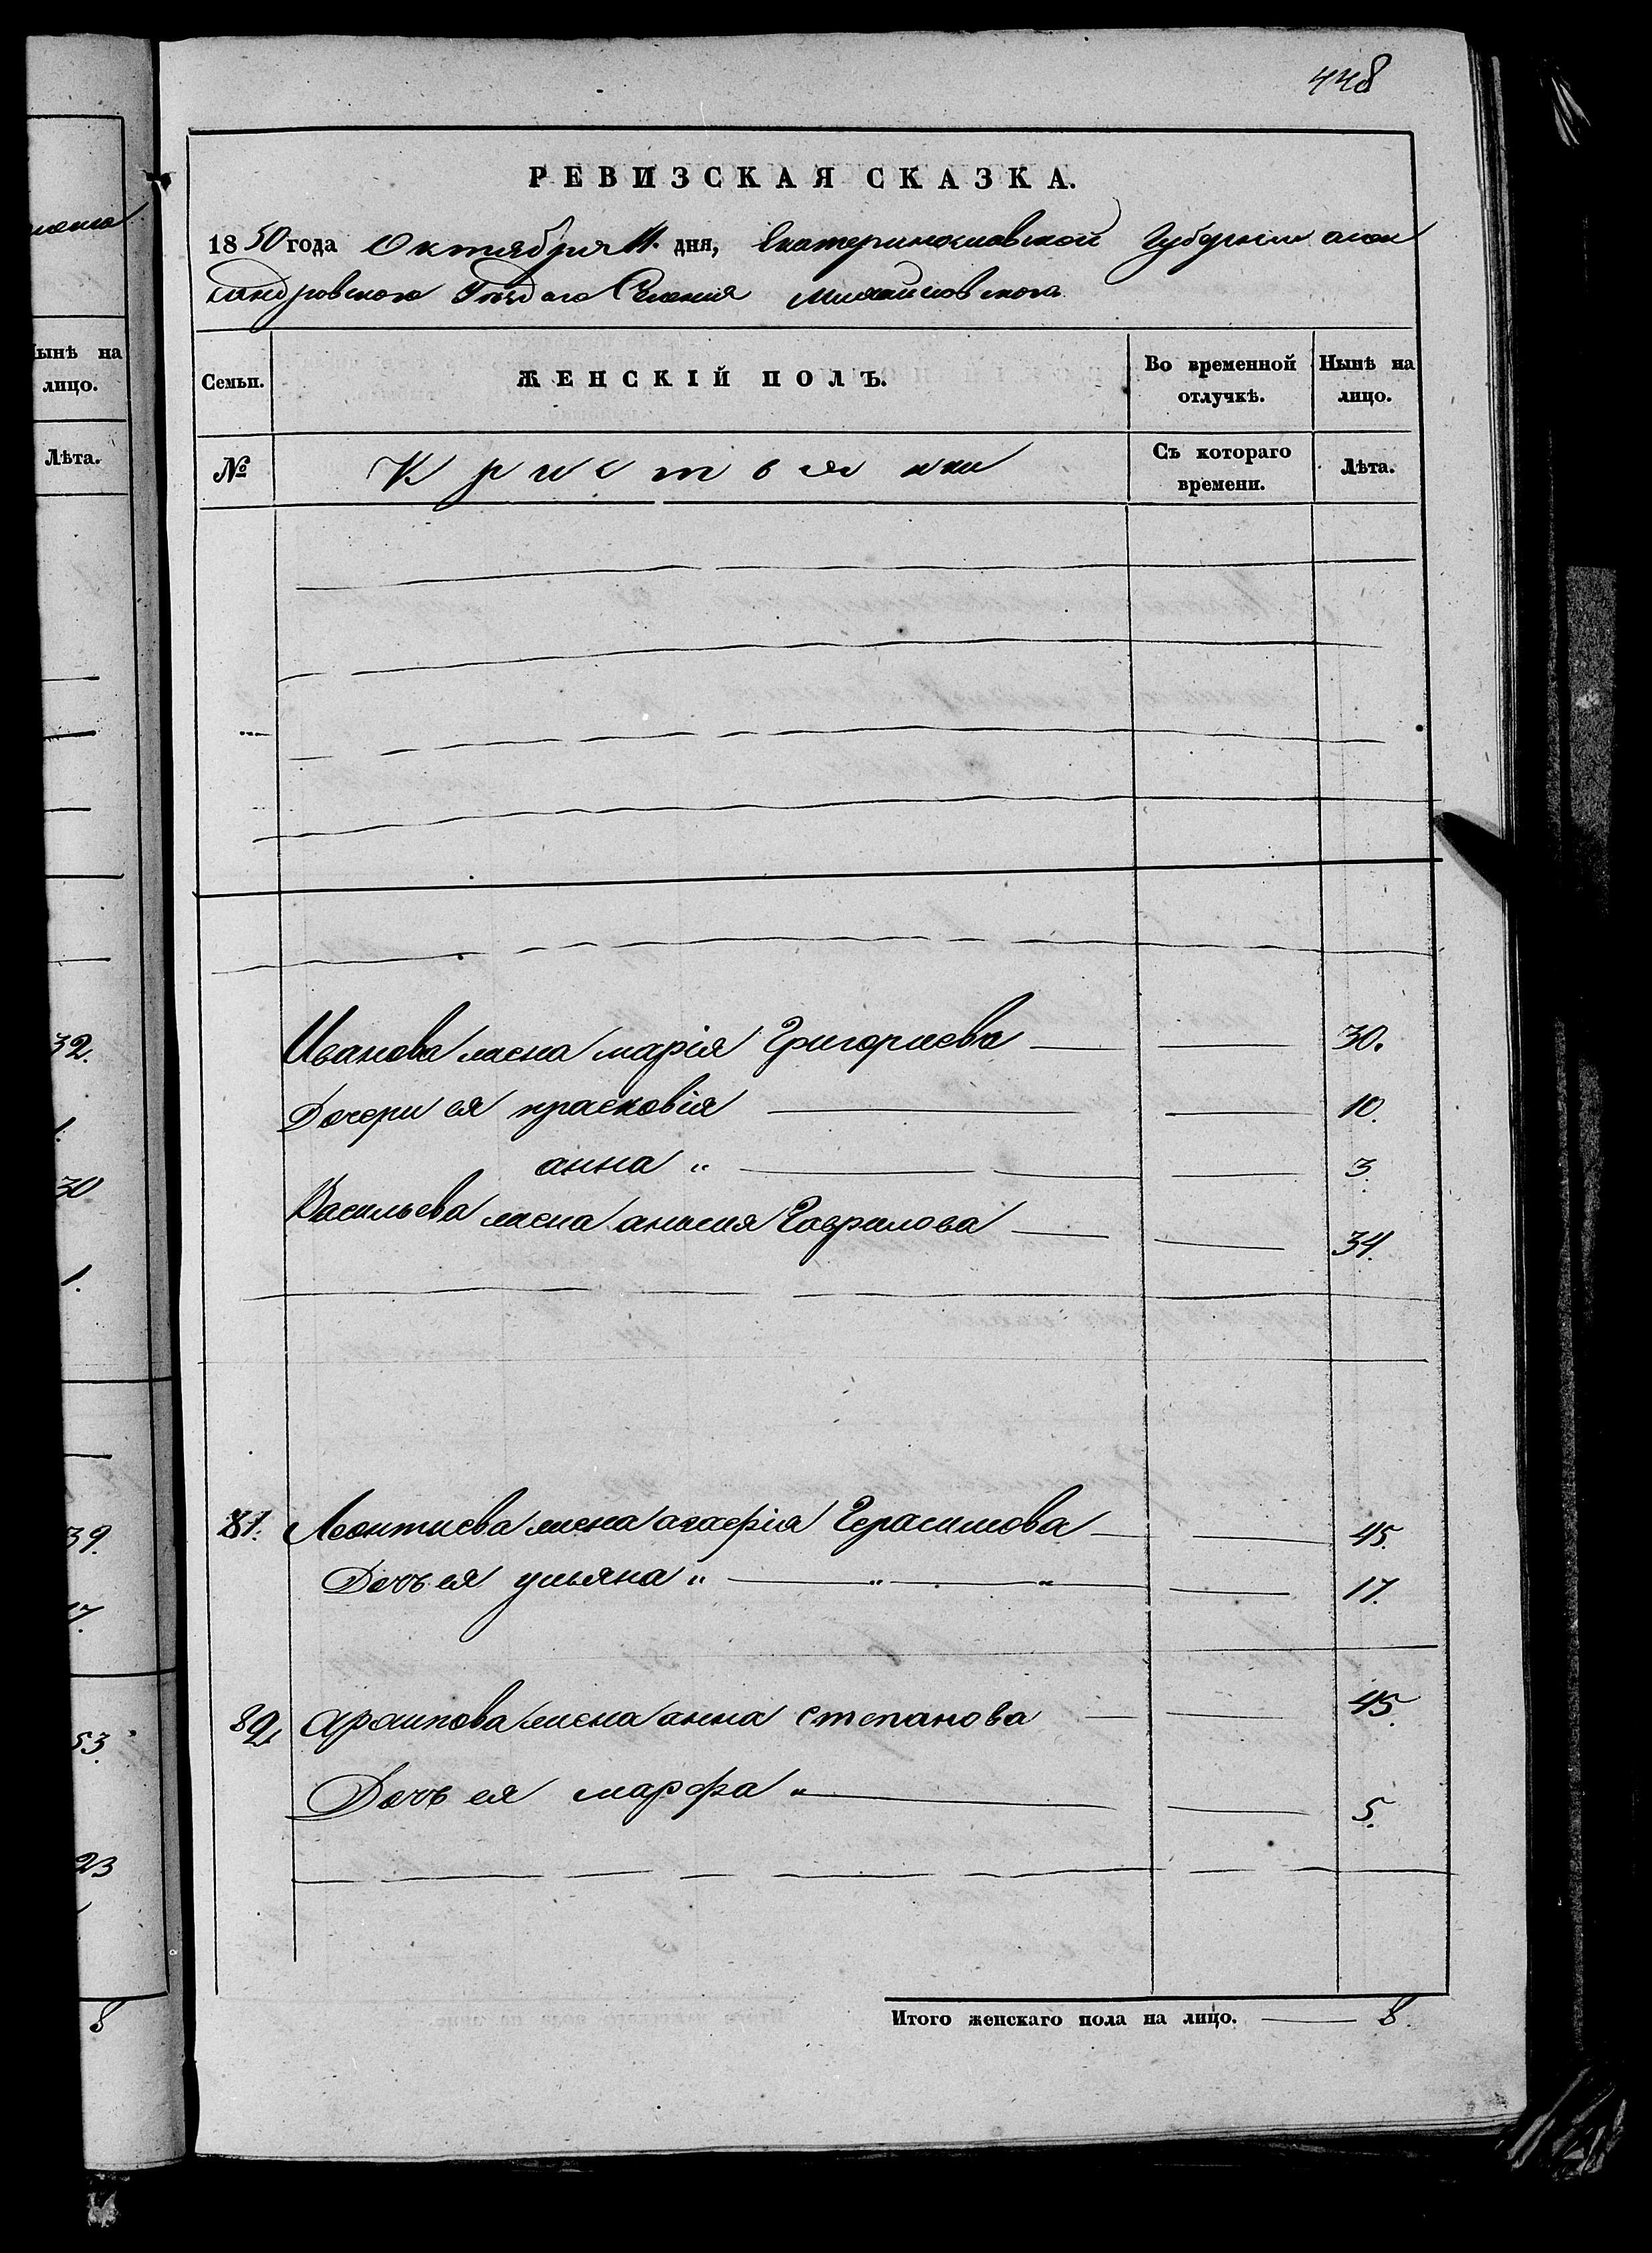 448
РЕВИЗСКАЯ СКАЗКА.
1850 года Октября 11. дня, Екатеринославской Губернии алек
сандровского Уѣздаго Селения Михайловского
Семьи. ЖЕНСКІЙ ПОЛЪ. Во временной отлучкѣ. Нынѣ на лицо.
№ Кристьянки Съ котораго времени. Лѣта.
Иванова жена марія Григориева 30.
Дочери ея прасковія 10.
анна " 3.
Васильева жена анисия Гаврилова 34.
81. Леонтиева жена агафія Герасимова 45.
Дочь ея ульяна " 17.
82 архипова жена анна Степанова 45.
Дочь ея марфа " 5.
Итого женскаго пола на лицо. 8.
Нынѣ на
лицо.
Лѣта.
32.
1.
30
1.
39.
17.
53.
23
8